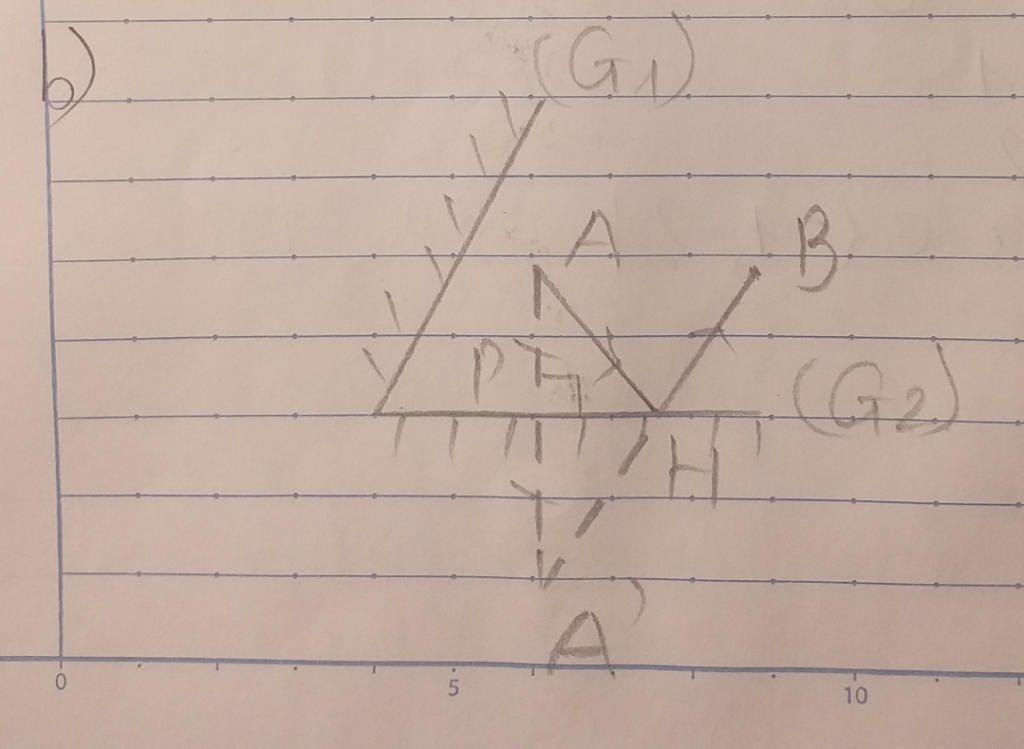 (G1)
A
B
P
(G2)
H
A'
0
5
10